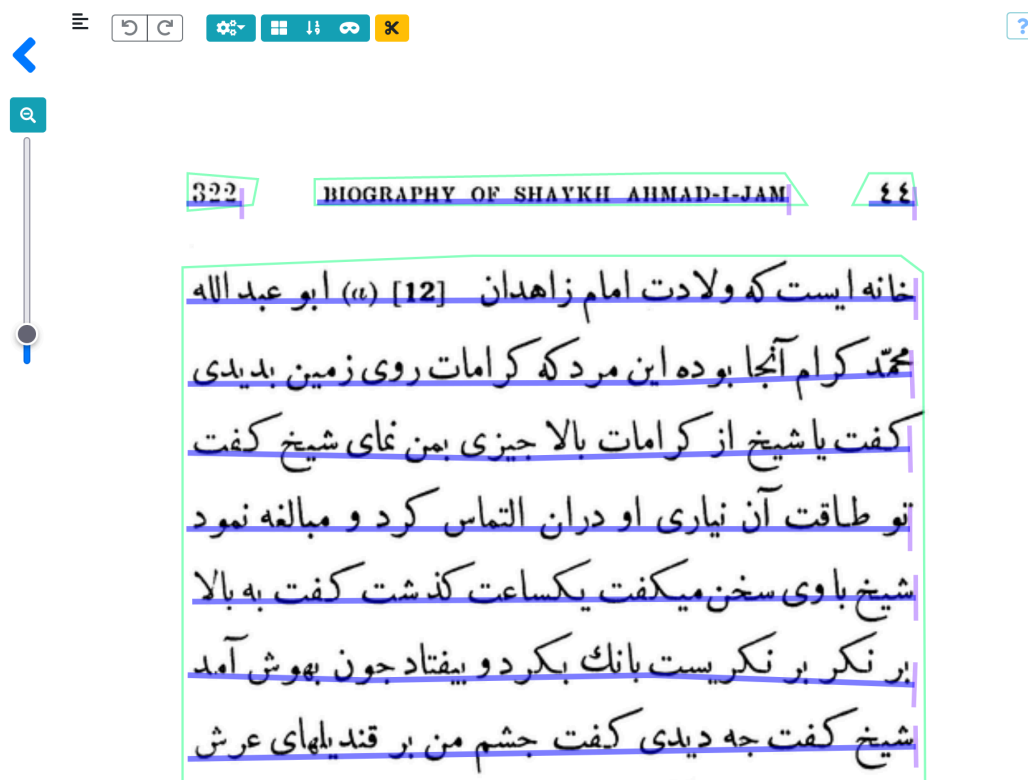 322 BIOGRAPHY OF SHAYKH AHMAD-I-JAM ٤٤
خانه ایست که ولادت امام زاهدان [12] (a) ابو عبد الله
محمّد کرام آنجا بوده این مرد که کرامات روی زمین بدیدی
کفت یا شیخ از کرامات بالا جیزی بمن نمای شیخ کفت
تو طاقت آن نیاری او دران التماس کرد و مبالغه نمود
شیخ با وی سخن میکفت یکساعت کذشت کفت به بالا
بر نکر بر نکریست بانك بکرد و بیفتاد جون بهوش آمد
شیخ کفت جه دیدی کفت جشم من بر قندیلهای عرش